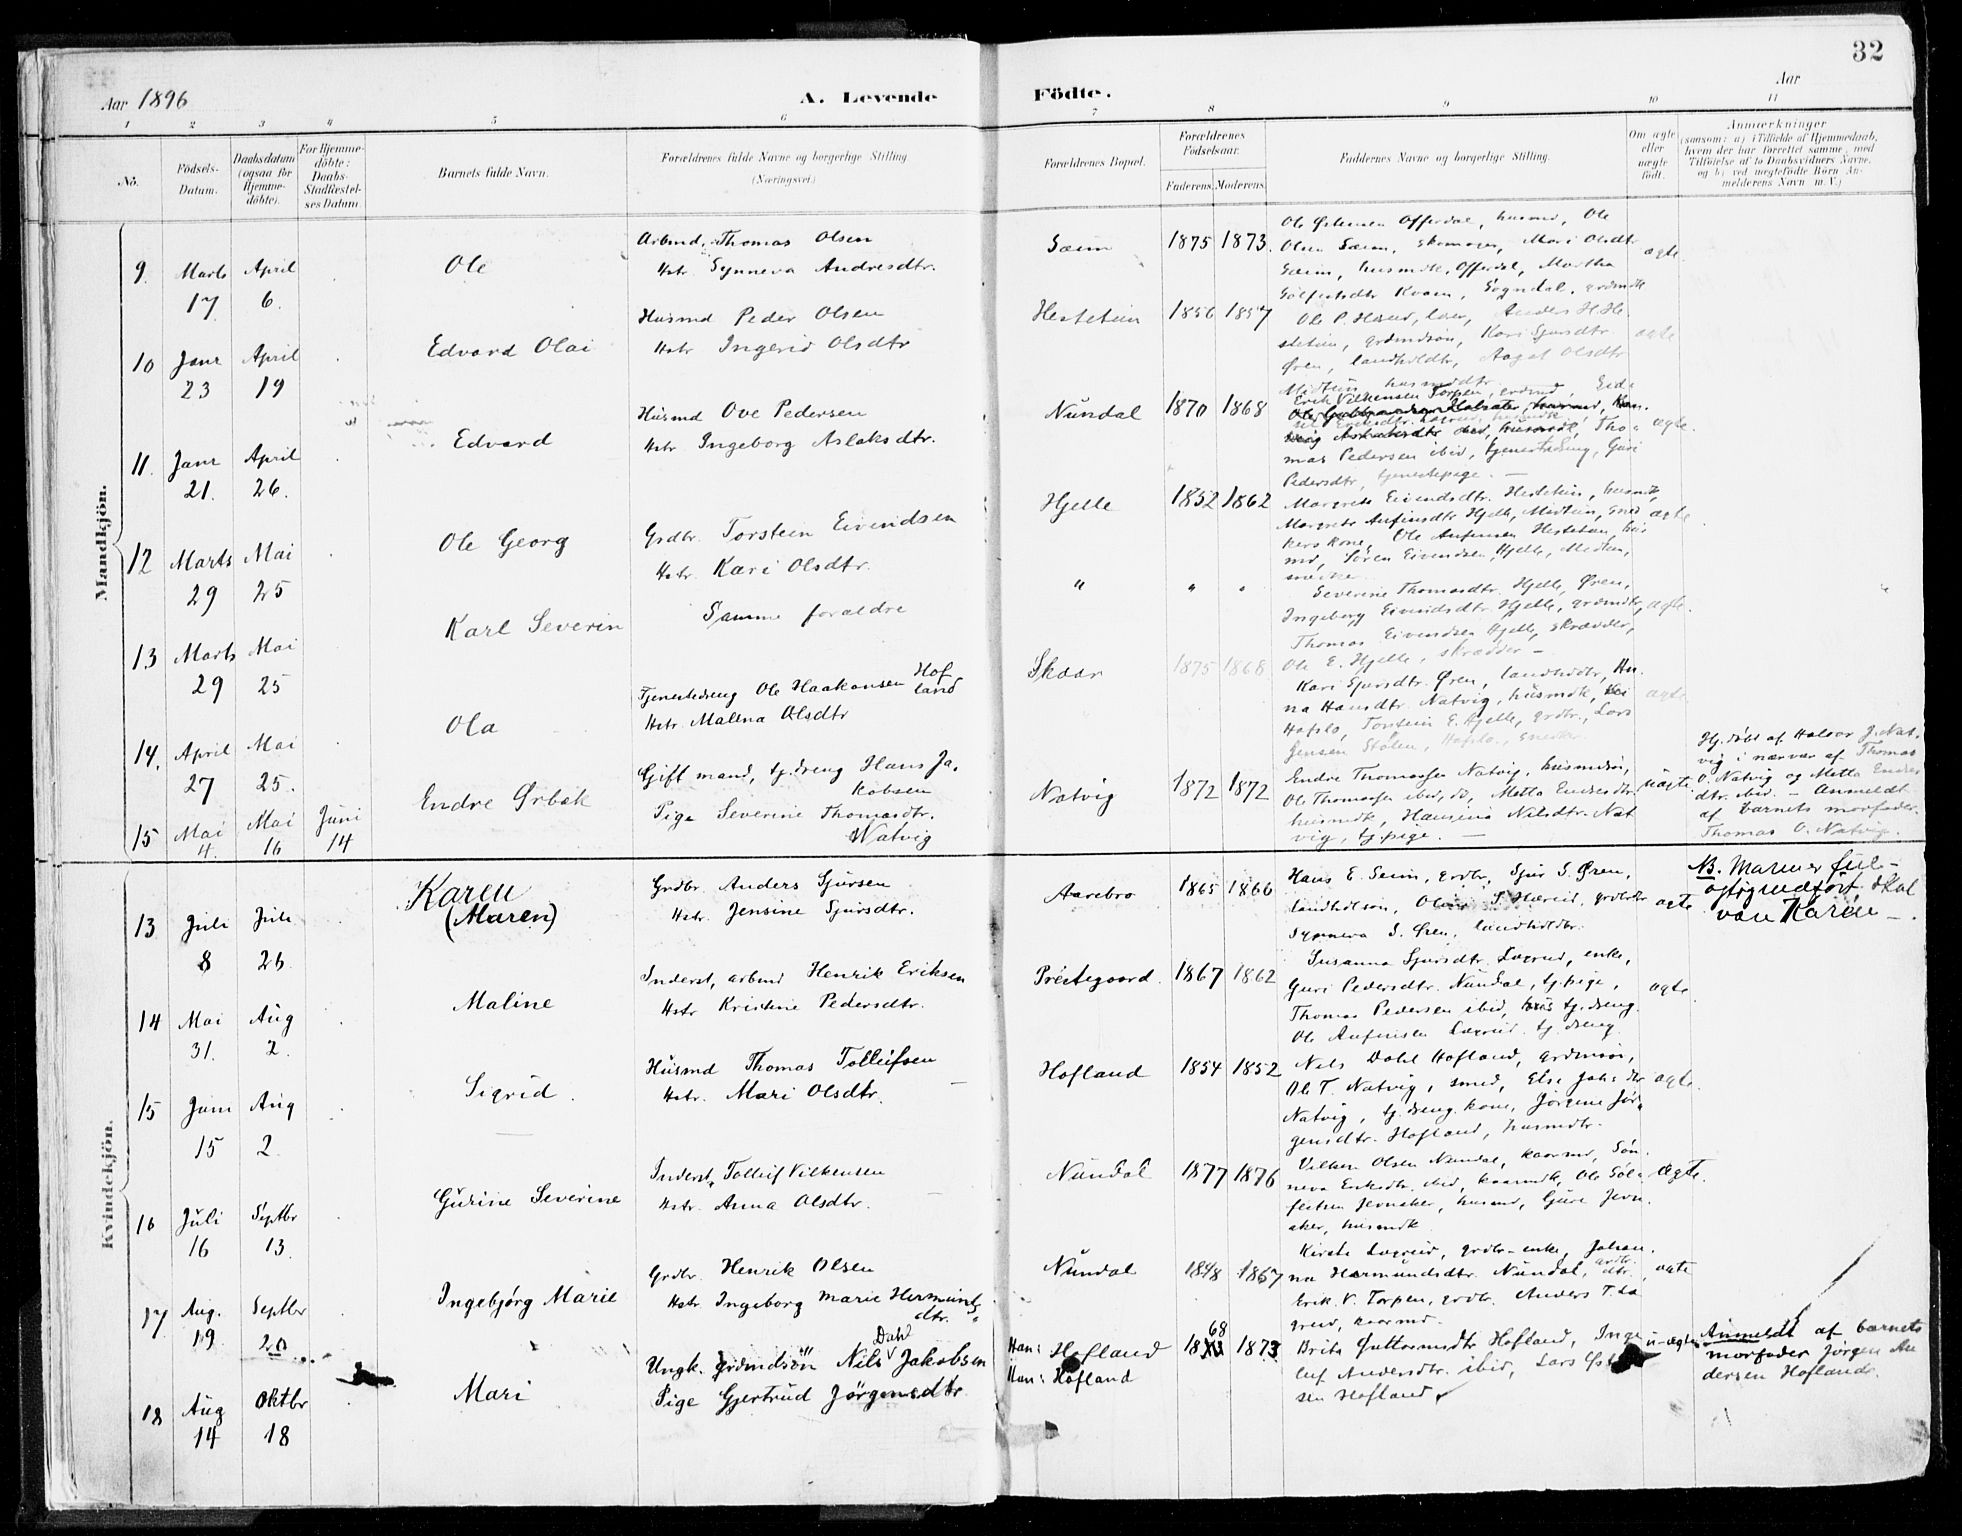 32
Aar 1896
A. Levende
Födte.
Aar
1 2 3 4 5 6 7 8 9 10 11
No.
Födsels-Datum.
Daabsdatum (ogsaa for Hjemmedöbte).
For Hjemmedöbte: Daabs-Stadfæstelses Datum.
Barnets fulde Navn.
Forældrenes fulde Navne og borgerlige Stilling
(Næringsvei.)
Forældrenes Bopæl.
Forældrenes Födselsaar.
Faderens. Moderens.
Faddernes Navne og borgerlige Stilling.
Om ægte eller uægte födt.
Anmærkninger
(saasom: a) i Tilfælde af Hjemmedaab, hvem der har forrettet samme, med Tilföielse af to Daabsvidners Navne, og b) ved uægtefödte Börn Anmelderens Navn m. V.)
Mandkjön.
9. Marts 17 April 6. Ole
Arbmd. Thomas Olsen
Hstr. Synneva Andresdtr.
Sæim 1875 1873.
Ole Olsen Offerdal, husmd, Ole
Olsen Sæim, skomager, Mari Olsdtr
Sæim, husmdk. Offerdal, Martha
Kvam, Sogndal, grdmdk
ægte
10 Janr 23 April 19 Edvard Olai
Husmd Peder Olsen
Hstr Ingerid Olsdtr
Hestetun 1856 1857
Ole P. Hæreid, Anders H. He-
stetun, grdmdsön, Kari Sjursdtr
Øren, landholdtr, Aagot Olsdtr
Midtun, husmddtr.
ægte
11. Janr 21. April 26. Edvard
Husmd Ove Pedersen
Hstr Ingeborg Aslaksdtr.
Nundal 1870 1868
Erik Vilhemsen Torpen, grdmd,
Tho-
mas Pedersen ibid, tjenestedreng, Guri
Pedersdtr, tjenestepige. —
ægte.
12 Marts 29 Mai 25 Ole Georg
Grdbr. Torstein Eivindsen
Hstr. Kari Olsdtr.
Hjelle 1852 1862
Margrete Eivendsdtr. Hestetun, husmdk,
Margrete Anfinsdtr Hjelle, Midtun, sned-
kers kone, Ole Anfinsen Hestetun, hus-
md, Sören Eivendsen Hjelle, Midtun,
snedker.
ægte
13 Marts 29 Mai 25 Karl Severin
Samme foraldre
" " "
Severine Thomasdtr. Hjelle, Øren,
Ingeborg Eivindsdtr. Hjelle, grdmdtr,
Thomas Eivendsen Hjelle, skrædder,
Ole E. Hjelle, skrædder —
ægte.
14. April 27 Mai 25. Ola
Tjenestedreng Ole Haakonsen Hofland
Hstr. Malena Olsdtr
Skaar 1875 1868
Kari Sjursdtr. Øren, landholdtr, Han-
na Hansdtr. Natvig, husmdk,
Hafslo, Torstein E. Hjelle, grdbr., Lars
Jensen Stölen, Hafslo, snedker.
ægte
15 Mai 4. Mai 16 Juni 14 Endre Ørbæk
Gift mand, tj.dreng Hans Ja-
kobsen
Pige Severine Thomasdtr.
Natvig
Natvig 1872 1872
Endre Thomassen Natvig, husmdsön,
Ole Thomassen ibid, do, Metta Endresdtr
husmdk, Hansina Nilsdtr. Nat
vig, tj.pige. —
uægte
Hj.döbt af Halvor J. Nat-
vig i nærvær af Thomas
O. Natvig og Metta Endres
dtr. ibid. — Anmeldt
af barnets morfader
Thomas O. Natvig.
Kvindekjön.
13 Juli 8 Juli 26 Karen
(Maren)
Grdbr. Anders Sjursen
Hstr. Jensine Sjursdtr.
Aarebro 1865 1866
Hans E. Seim, grdbr, Sjur S. Øren,
landholsön, S. Hæreid, grdbrdtr
Synneva S. Øren, landholdtr.
ægte
NB. Maren er feil-
agtig indfört skal
være Karen —.
14 Mai 31. Aug 2. Maline
Inderst, arbmd Henrik Eriksen
Hstr Kristine Pedersdtr.
Præstegaard. 1867 1862
Susanna Sjursdtr. Lægreid, enke,
Guri Pedersdtr. Nundal, tj.pige,
Thomas Pedersen ibid, tj.dreng.
Ole Anfinsen Lægreid tj.dreng.
ægte
15 Juni 15 Aug 2. Sigrid.
Husmd Thomas Tolleifsen
Hstr. Mari Olsdtr.
Hofland 1854 1852
Nils Dahl Hofland, grdmsön,
Ole T. Natvig, smed, Else Joh.dtr
Natvig, tj.dreng.kone, Jörgine Jör-
gensdtr. Hofland, husmdtr.
ægte.
16 Juli 16 Septbr 13. Gurine Severine
Inderst, Tolleif Vilhemsen
Hstr. Anna Olsdtr.
Nundal 1877 1876
Vilhem Olsen Nundal, kaarmd, Sön-
neva Eriksdtr. ibid, kaarmdk, Ole Göl-
feitsen Jevnaker, husmd, Guri Jevn-
aker, husmdk
ægte.
17 Aug. 19 Septbr 20 Ingebjørg Marie
Grdbr. Henrik Olsen
Hstr. Ingeborg Marie Hermunds
dtr.
Nundal 1848 1867
Kirsti Lægreid, grdbr-enke, Johan-
na Hermundsdtr. Nundal, grdbr. dtr.,
Erik V. Torpen, grdbr. Anders T. Læ
greid, kaarmd.
ægte
18 Aug 14 Oktbr 18 Mari
Ungk. grdmdsön Nils Dahl Jakobsen
Pige Gjertrud Jörgensdtr.
Han: Hofland
Hun: Hofland
18 68 1873
Brita Guttormsdtr Hofland, Inge
leif Andersdtr. ibid, Lars
sen Hofland
uægte
Anmeldt af barnets
morfader Jörgen An
dersen Hofland.